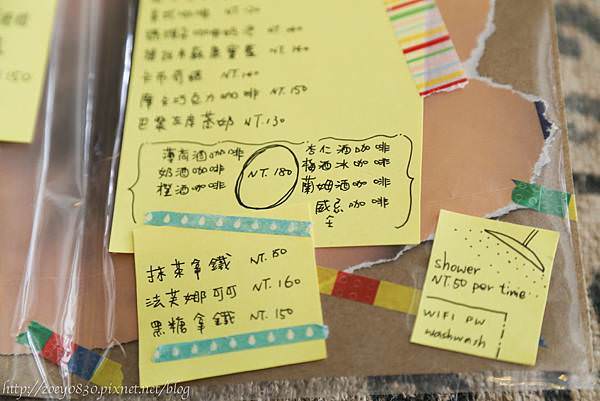 150
咖啡 NT.120
咖啡奶泡 NT.150
NT.160
卡布奇諾 NT.140
摩卡巧克力咖啡 NT.150
巴黎左岸茶奶 NT.130
薄荷酒咖啡
奶酒咖啡
橙酒咖啡
NT.180
杏仁酒咖啡
梅酒冰咖啡
蘭姆酒咖啡
威士忌咖啡
抹茶拿鐵 NT.150
法芙娜可可 NT.160
黑糖拿鐵 NT.150
shower
NT.50 per time
WIFI PW
washwash
http://zoey0830.pixnet.net/blog